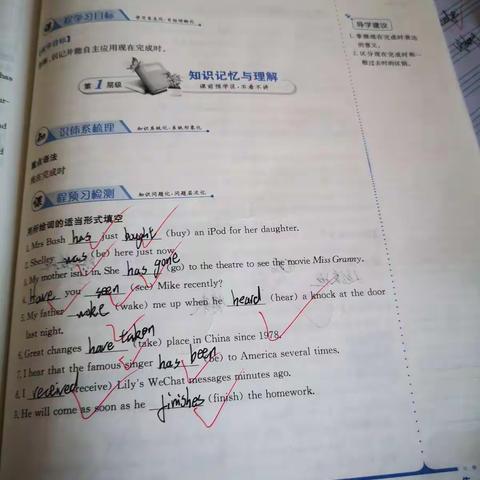 程学习目标
导学建议
1. 掌握现在完成时表达
的意义。
2. 区分现在完成时和一
般过去时的区别。
识记并能自主应用现在完成时。
第1层级
知识记忆与理解
课前预学区·不看不讲
识体系梳理
知识系统化·系统形象化
重点语法
现在完成时
课程预习检测
知识问题化·问题层次化
用所给词的适当形式填空
1. Mrs Bush has just bought (buy) an iPod for her daughter.
2. Shelley was (be) here just now.
3. My mother isn't in. She has gone (go) to the theatre to see the movie Miss Granny.
4. Have you seen (see) Mike recently?
5. My father woke (wake) me up when he heard (hear) a knock at the door
last night.
6. Great changes have taken (take) place in China since 1978.
7. I hear that the famous singer has been (be) to America several times.
8. I received (receive) Lily's WeChat messages minutes ago.
9. He will come as soon as he finishes (finish) the homework.